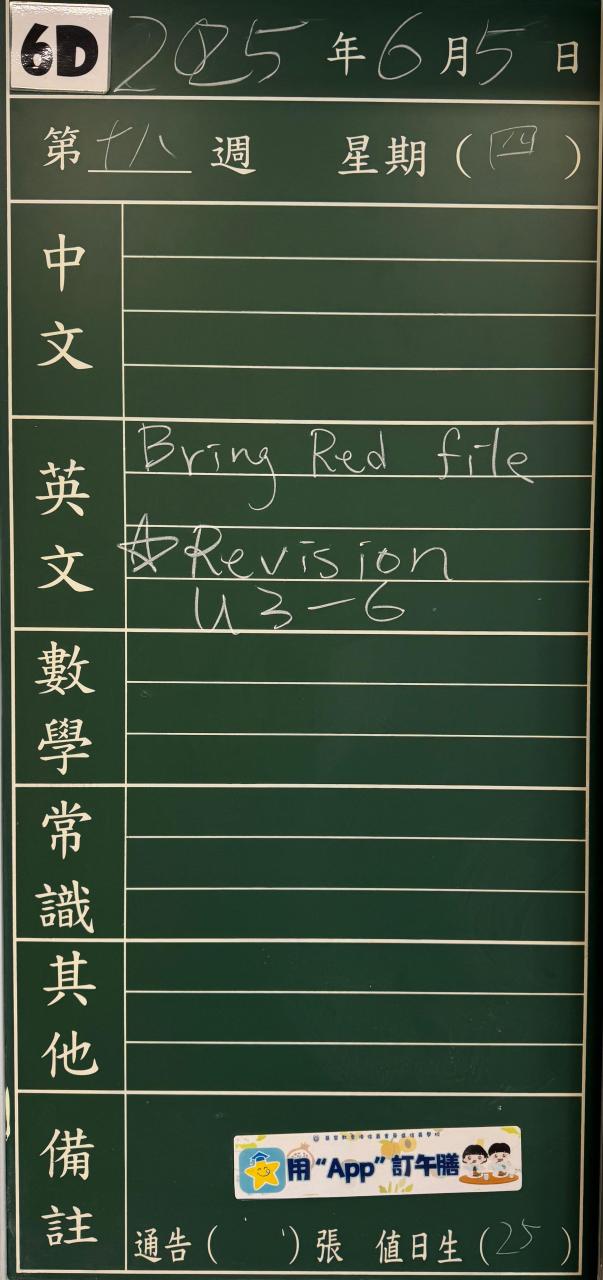 6D 2025年6月5日
第十八週 星期（四）
中文
英文
Bring Red file
☆Revision
U3-6
數學
常識
其他
備註
用“App”訂午膳
通告（ ）張 值日生（25）